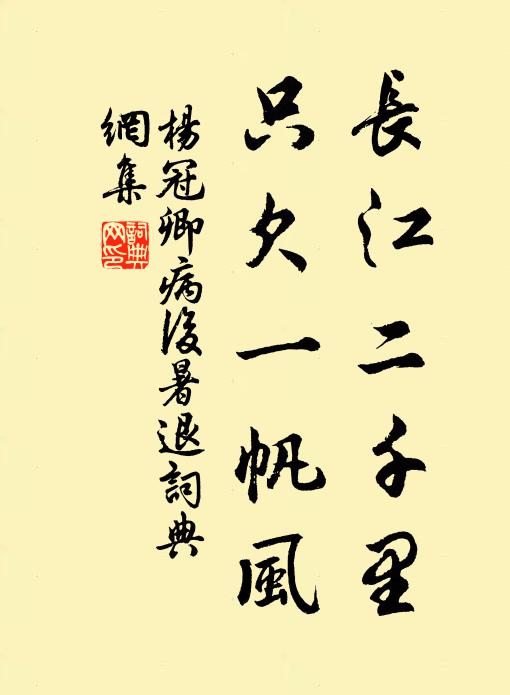 長江二千里
只欠一帆風
楊冠卿病後暑退詞典
網集
詞典
网印